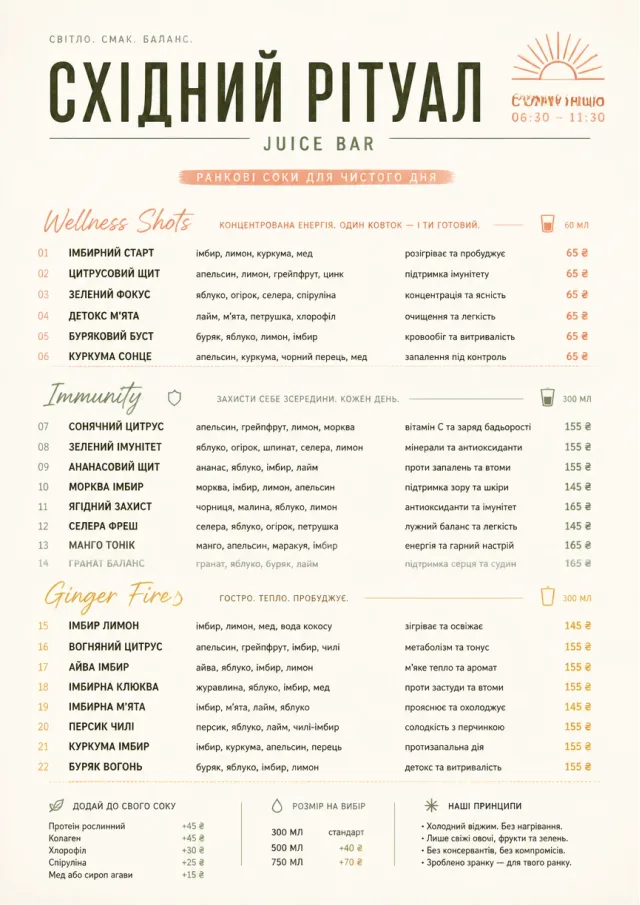 СВІТЛО. СМАК. БАЛАНС.
СХІДНИЙ РІТУАЛ
06:30 – 11:30
JUICE BAR
РАНКОВІ СОКИ ДЛЯ ЧИСТОГО ДНЯ
Wellness Shots КОНЦЕНТРОВАНА ЕНЕРГІЯ. ОДИН КОВТОК — І ТИ ГОТОВИЙ. 60 МЛ
01 ІМБИРНИЙ СТАРТ імбир, лимон, куркума, мед розігріває та пробуджує 65 ₴
02 ЦИТРУСОВИЙ ЩИТ апельсин, лимон, грейпфрут, цинк підтримка імунітету 65 ₴
03 ЗЕЛЕНИЙ ФОКУС яблуко, огірок, селера, спіруліна концентрація та ясність 65 ₴
04 ДЕТОКС М'ЯТА лайм, м'ята, петрушка, хлорофіл очищення та легкість 65 ₴
05 БУРЯКОВИЙ БУСТ буряк, яблуко, лимон, імбир кровообіг та витривалість 65 ₴
06 КУРКУМА СОНЦЕ апельсин, куркума, чорний перець, мед запалення під контроль 65 ₴
Immunity ЗАХИСТИ СЕБЕ ЗСЕРЕДИНИ. КОЖЕН ДЕНЬ. 300 МЛ
07 СОНЯЧНИЙ ЦИТРУС апельсин, грейпфрут, лимон, морква вітамін С та заряд бадьорості 155 ₴
08 ЗЕЛЕНИЙ ІМУНІТЕТ яблуко, огірок, шпинат, селера, лимон мінерали та антиоксиданти 155 ₴
09 АНАНАСОВИЙ ЩИТ ананас, яблуко, імбир, лайм проти запалень та втоми 155 ₴
10 МОРКВА ІМБИР морква, імбир, лимон, апельсин підтримка зору та шкіри 145 ₴
11 ЯГІДНИЙ ЗАХИСТ чорниця, малина, яблуко, лимон антиоксиданти та імунітет 165 ₴
12 СЕЛЕРА ФРЕШ селера, яблуко, огірок, петрушка лужний баланс та легкість 145 ₴
13 МАНГО ТОНІК манго, апельсин, маракуя, імбир енергія та гарний настрій 165 ₴
14 ГРАНАТ БАЛАНС гранат, яблуко, буряк, лайм підтримка серця та судин 165 ₴
Ginger Fires ГОСТРО. ТЕПЛО. ПРОБУДЖУЄ. 300 МЛ
15 ІМБИР ЛИМОН імбир, лимон, мед, вода кокосу зігріває та освіжає 145 ₴
16 ВОГНЯНИЙ ЦИТРУС апельсин, грейпфрут, імбир, чилі метаболізм та тонус 155 ₴
17 АЙВА ІМБИР айва, яблуко, імбир, лимон м'яке тепло та аромат 155 ₴
18 ІМБИРНА КЛЮКВА журавлина, яблуко, імбир, мед проти застуди та втоми 155 ₴
19 ІМБИРНА М'ЯТА імбир, м'ята, лайм, яблуко прояснює та охолоджує 145 ₴
20 ПЕРСИК ЧИЛІ персик, яблуко, лайм, чилі-імбир солодкість з перчинкою 155 ₴
21 КУРКУМА ІМБИР імбир, куркума, апельсин, перець протизапальна дія 155 ₴
22 БУРЯК ВОГОНЬ буряк, яблуко, імбир, лимон детокс та витривалість 155 ₴
ДОДАЙ ДО СВОГО СОКУ
Протеїн рослинний +45 ₴
Колаген +45 ₴
Хлорофіл +30 ₴
Спіруліна +25 ₴
Мед або сироп агави +15 ₴
РОЗМІР НА ВИБІР
300 МЛ стандарт
500 МЛ +40 ₴
750 МЛ +70 ₴
НАШІ ПРИНЦИПИ
• Холодний віджим. Без нагрівання.
• Лише свіжі овочі, фрукти та зелень.
• Без консервантів, без компромісів.
• Зроблено зранку — для твого ранку.